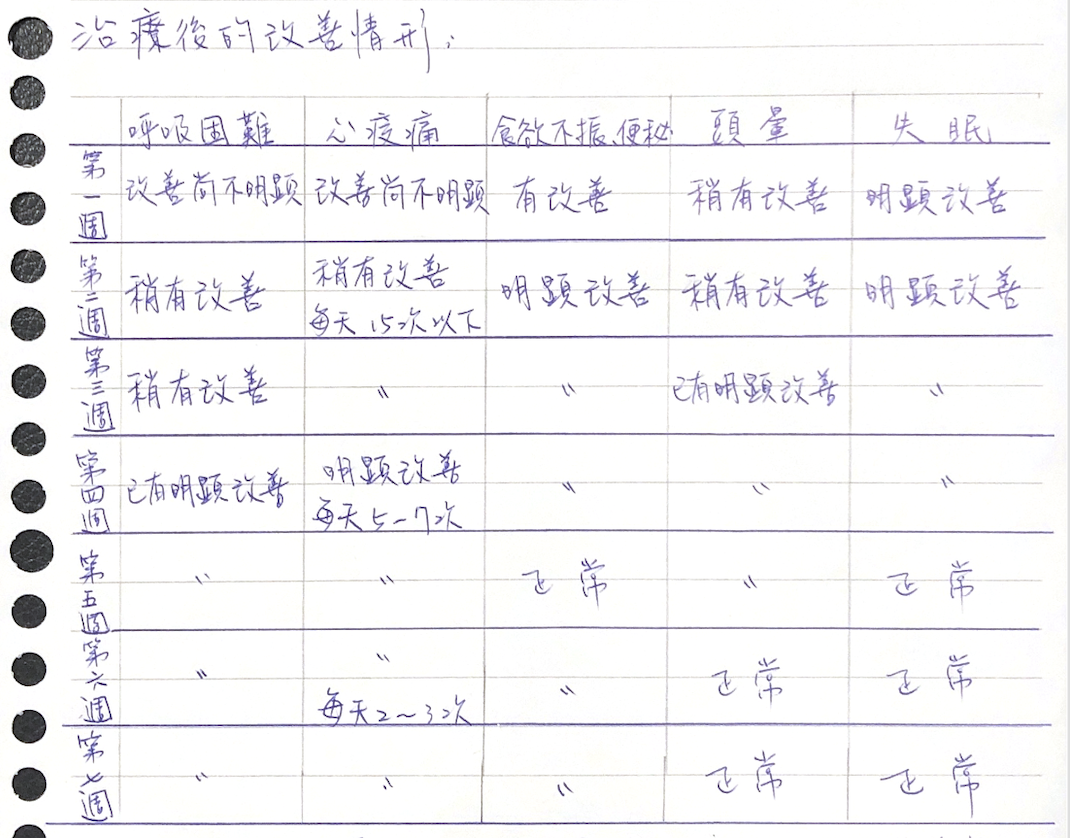 治療後的改善情形：
呼吸困難 心疫痛 食欲不振、便秘 頭暈 失眠
第一週 改善尚不明顯 改善尚不明顯 有改善 稍有改善 明顯改善
第二週 稍有改善 稍有改善 每天15次以下 明顯改善 稍有改善 明顯改善
第三週 稍有改善 〃 〃 已有明顯改善 〃
第四週 已有明顯改善 明顯改善 每天5~7次 〃 〃 〃
第五週 〃 〃 正常 〃 正常
第六週 〃 〃 每天2~3次 〃 正常 正常
第七週 〃 〃 〃 正常 正常